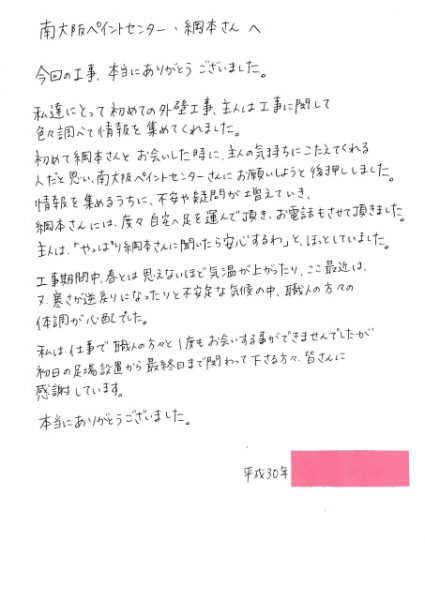 南大阪ペイントセンター・綱本さんへ
今回の工事、本当にありがとうございました。
私達にとって初めての外壁工事、主人は工事に関して
色々調べて情報を集めてくれました。
初めて綱本さんとお会いした時に、主人の気持ちにこたえてくれる
人だと思い、南大阪ペイントセンターさんにお願いしようと後押ししました。
情報を集めるうちに、不安や疑問が増えていき、
綱本さんには、度々自宅へ足を運んで頂き、お電話もさせて頂きました。
主人は、「やっぱり綱本さんに聞いたら安心するわ」と、ほっとしていました。
工事期間中、春とは思えないほど気温が上がったり、ここ最近は、
又、寒さが逆戻りになったりと不安定な気候の中、職人の方々の
体調が心配でした。
私は、仕事で職人の方々と1度もお会いする事ができませんでしたが
初日の足場設置から最終日まで関わって下さる方々、皆さんに
感謝しています。
本当にありがとうございました。
平成30年